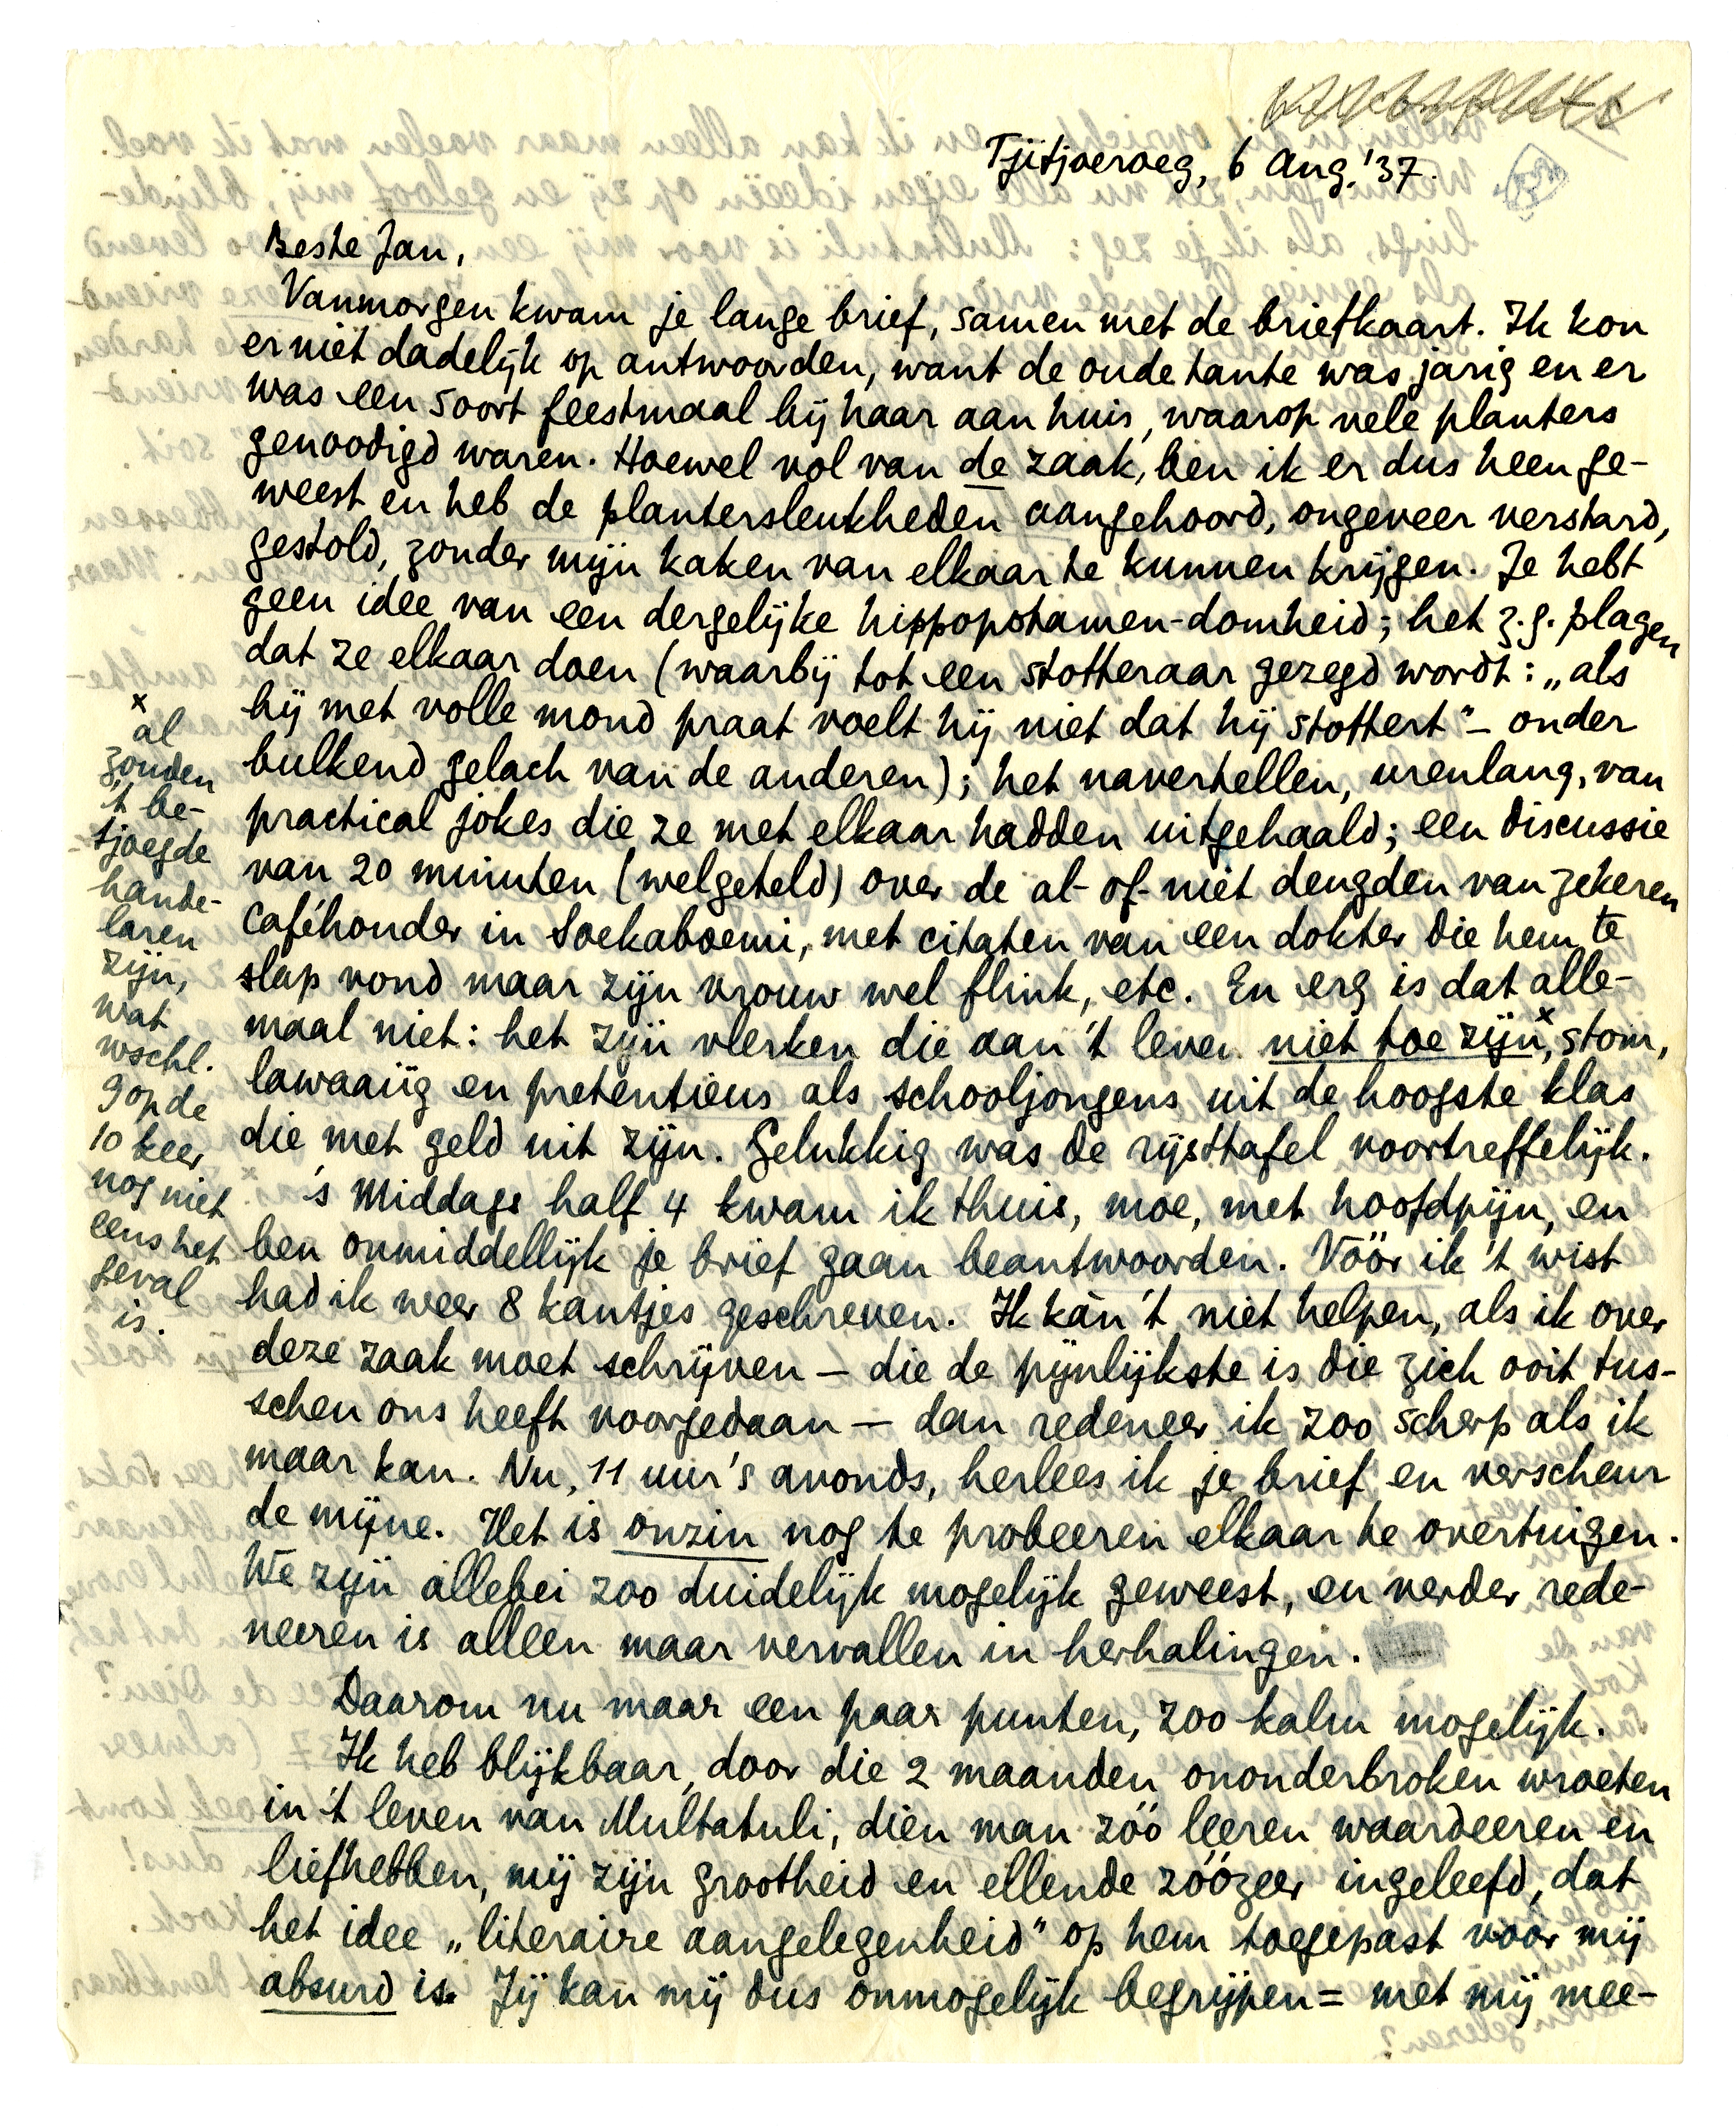 Tjitjoeroeg, 6 Aug. '37.
Beste Jan,
Vanmorgen kwam je lange brief, samen met de briefkaart. Ik kon
er niet dadelijk op antwoorden, want de oude tante was jarig en er
was een soort feestmaal bij haar aan huis, waarop vele planters
genoodigd waren. Hoewel vol van de zaak, ben ik er dus heen ge-
weest en heb de plantersleukheden aangehoord, ongeveer verstard,
gestold, zonder mijn kaken van elkaar te kunnen krijgen. Je hebt
geen idee van een dergelijke hippopotamen-domheid; het z.g. plagen
dat ze elkaar doen (waarbij tot een stotteraar gezegd wordt: „als
hij met volle mond praat voelt hij niet dat hij stottert" – onder
bulkend gelach van de anderen); het navertellen, urenlang, van
practical jokes die ze met elkaar hadden uitgehaald; een discussie
van 20 minuten (welgeteld) over de al- of- niet deugden van zekeren
caféhouder in Soekaboemi, met citaten van een dokter die hem te
slap vond maar zijn vrouw wel flink, etc. En erg is dat alle-
maal niet: het zijn vlerken die aan 't leven niet toe zijn x, stom,
lawaaiïg en pretentieus als schooljongens uit de hoogste klas
die met geld uit zijn. Gelukkig was de rijsttafel voortreffelijk.
's Middags half 4 kwam ik thuis, moe, met hoofdpijn, en
ben onmiddellijk je brief gaan beantwoorden. Vóór ik 't wist
had ik weer 8 kantjes geschreven. Ik kàn 't niet helpen, als ik over
deze zaak moet schrijven – die de pijnlijkste is die zich ooit tus-
schen ons heeft voorgedaan – dan redeneer ik zoo scherp als ik
maar kan. Nu, 11 uur 's avonds, herlees ik je brief en verscheur
de mijne. Het is onzin nog te probeeren elkaar te overtuigen.
We zijn allebei zoo duidelijk mogelijk geweest, en verder rede-
neeren is alleen maar vervallen in herhalingen.
Daarom nu maar een paar punten, zoo kalm mogelijk.
Ik heb blijkbaar, door die 2 maanden ononderbroken wroeten
in 't leven van Multatuli, dien man zóó leeren waardeeren en
liefhebben, mij zijn grootheid en ellende zóózeer ingeleefd, dat
het idee „literaire aangelegenheid" op hem toegepast voor mij
absurd is. Jij kan mij dus onmogelijk begrijpen = met mij mee-
x
al
zouden
't be-
tjoegde
hande-
laren
zijn,
wat
wschl.
9 op de
10 keer
nog niet
eens het
geval
is.